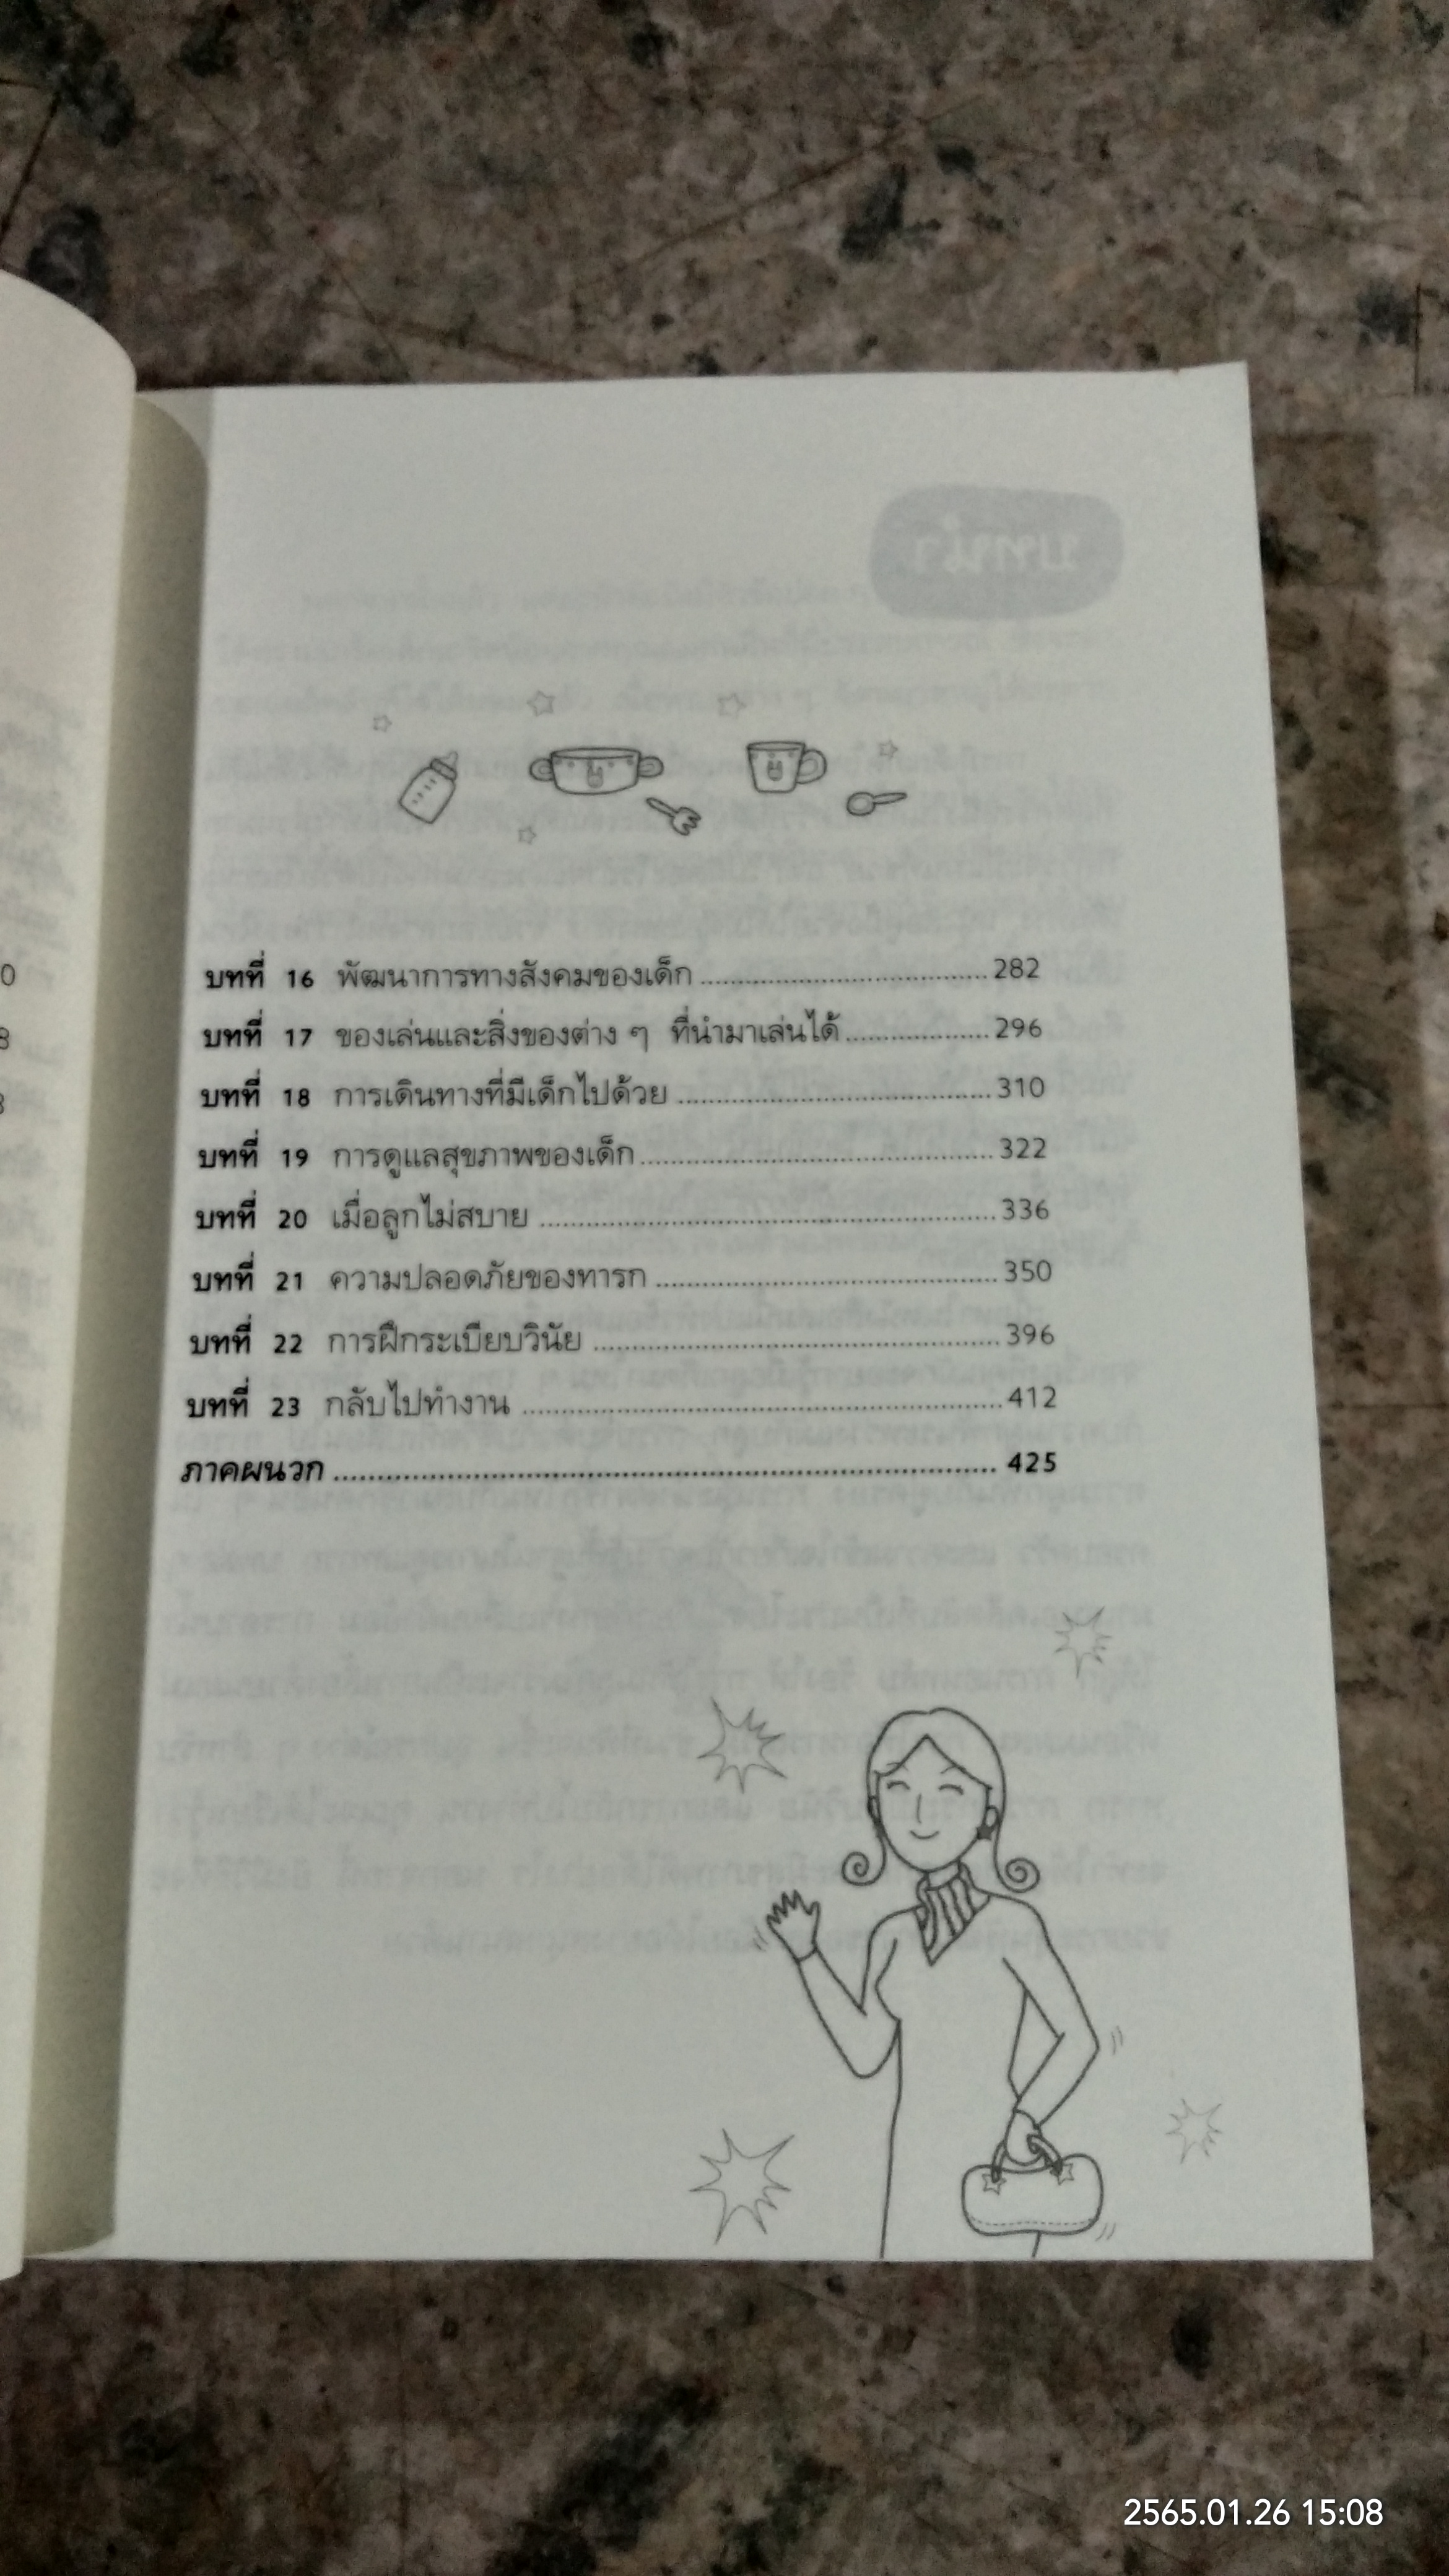 บทที่ 16 พัฒนาการทางสังคมของเด็ก 282
บทที่ 17 ของเล่นและสิ่งของต่าง ๆ ที่นำมาเล่นได้ 296
บทที่ 18 การเดินทางที่มีเด็กไปด้วย 310
บทที่ 19 การดูแลสุขภาพของเด็ก 322
บทที่ 20 เมื่อลูกไม่สบาย 336
บทที่ 21 ความปลอดภัยของทารก 350
บทที่ 22 การฝึกระเบียบวินัย 396
บทที่ 23 กลับไปทำงาน 412
ภาคผนวก 425
2565.01.26 15:08